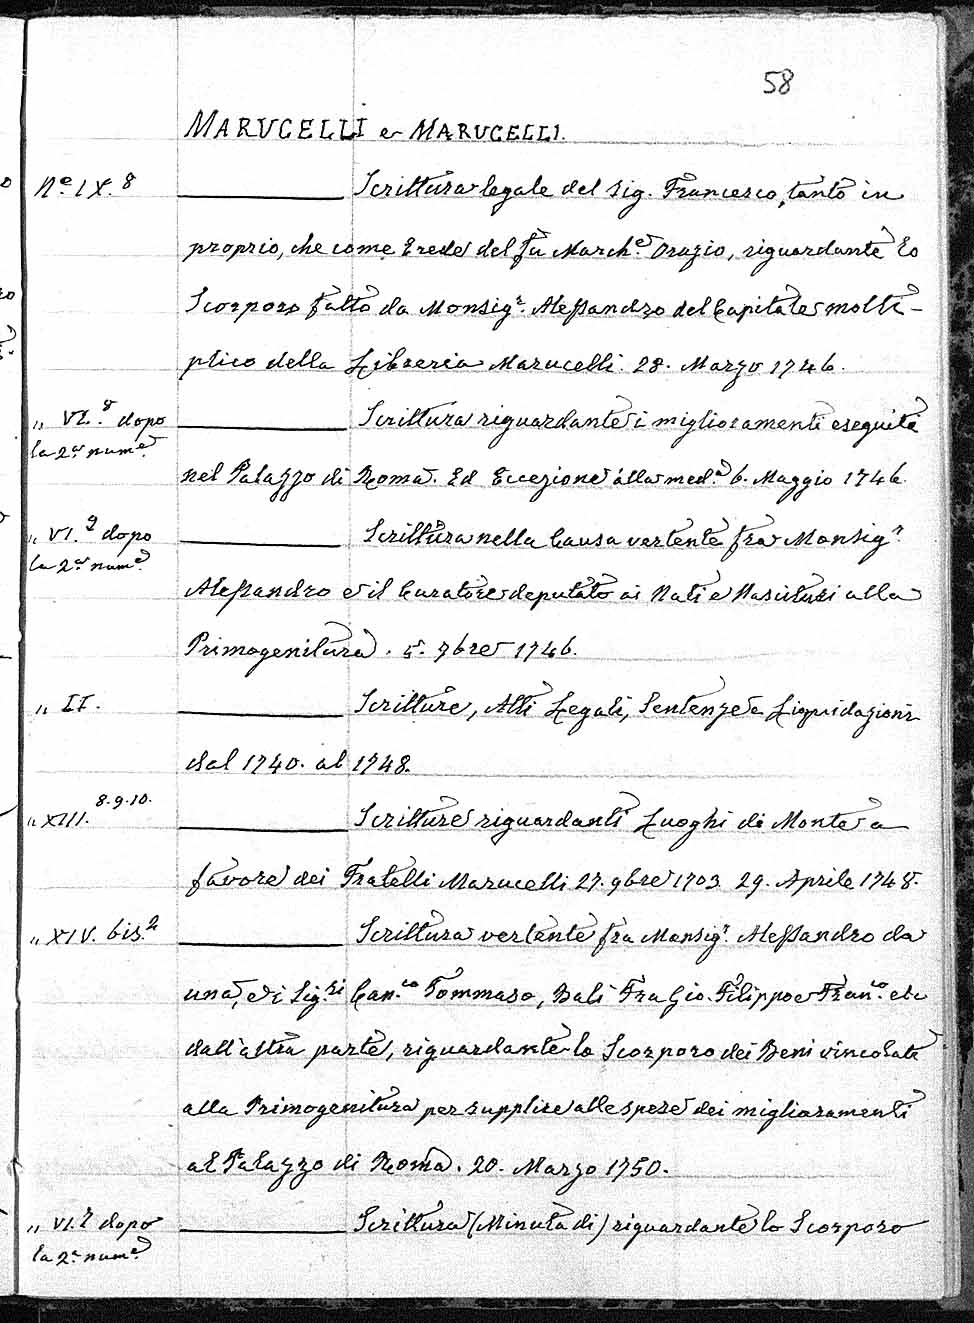 58
MARUCELLI e MARUCELLI.
N.º IX. 8 Scrittura legale del Sig. Francesco, tanto in
proprio, che come Erede del fu March.e Orazio, riguardante lo
Scorporo fatto da Monsig.r Alessandro del Capitale molti-
plico della Libreria Marucelli. 28. Marzo 1746.
„ VI. 8 dopo Scrittura riguardante i miglioramenti eseguiti
la 2.a num.e
nel Palazzo di Roma. Ed Eccezione alla med.a 6. Maggio 1746.
„ VI. 9 dopo Scrittura nella Causa vertente fra Monsig.r
la 2.a num.e
Alessandro e il Curatore deputato ai Nati e Nascituri alla
Primogenitura. 5. 7bre 1746.
„ II. Scritture, Atti Legali, Sentenze e Liquidazioni
dal 1740. al 1748.
„ XIII. 8.9.10. Scritture riguardanti Luoghi di Monte a
favore dei Fratelli Marucelli 27. 9bre 1703 29. Aprile 1748.
„ XIV. bis. 2 Scrittura vertente fra Monsig.r Alessandro da
una, e i Sig.ri Can.co Tommaso, Balì Fra Gio. Filippo e Fran.co etc
dall'altra parte, riguardante lo Scorporo dei Beni vincolati
alla Primogenitura per supplire alle spese dei miglioramenti
al Palazzo di Roma. 20. Marzo 1750.
„ VI. 7 dopo Scrittura (Minuta di) riguardante lo Scorporo
la 2.a num.e